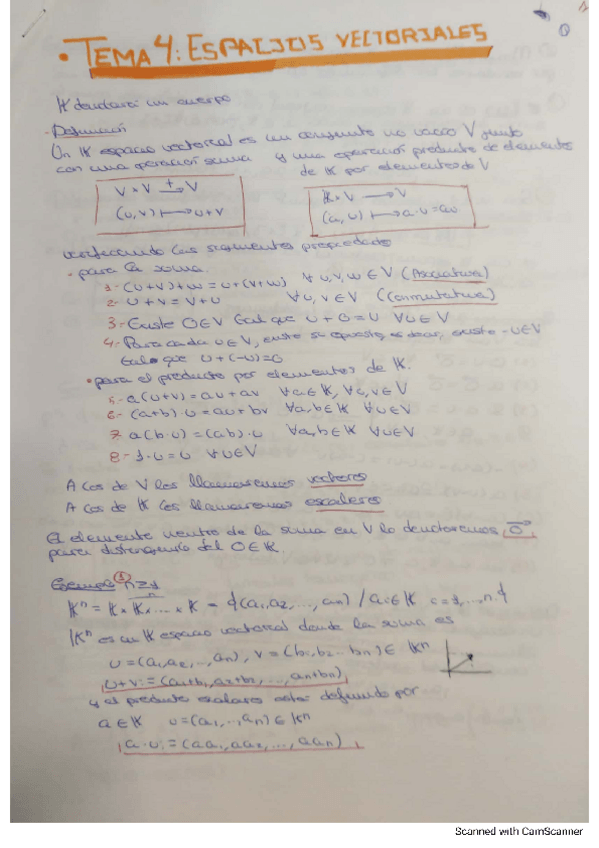 • TEMA 4: ESPACIOS VECTORIALES
K denotará un cuerpo
- Definición
Un K espacio vectorial es un conjunto no vacío V junto
con una operación suma y una operación producto de elementos
de K por elementos de V
V × V +→ V
(u, v) ↦ u+v
K × V → V
(a, u) ↦ a·u = au
verificando las siguientes propiedades
- para la suma.
1- (u+v)+w = u+(v+w) ∀ u,v,w ∈ V (Asociativa)
2- u+v = v+u ∀ u,v ∈ V (Conmutativa)
3- Existe 0∈V tal que u+0=u ∀u∈V
4- Para cada u∈V, existe su opuesto, es decir, existe -u∈V
tal que u+(-u)=0
• para el producto por elementos de K.
5- a(u+v) = au+av ∀a∈K, ∀u,v∈V
6- (a+b)·u = au+bu ∀a,b∈K ∀u∈V
7- a(b·u) = (ab)·u ∀a,b∈K ∀u∈V
8- 1·u = u ∀u∈V
A los de V les llamaremos vectores
A los de K les llamaremos escalares
El elemento neutro de la suma en V lo denotaremos 0⃗,
para distinguirlo del 0∈K
Ejemplo ① n≥1
Kⁿ = K × K × ... × K = {(a₁, a₂, ..., aₙ) / aᵢ∈K i=1,...,n}
Kⁿ es un K espacio vectorial donde la suma es
u=(a₁,a₂,...,aₙ), v=(b₁,b₂...bₙ)∈ Kⁿ
u+v:=(a₁+b₁, a₂+b₂, ..., aₙ+bₙ)
y el producto escalares está definido por
a∈K u=(a₁,...,aₙ)∈Kⁿ
a·u:=(aa₁, aa₂, ..., aaₙ)
Scanned with CamScanner